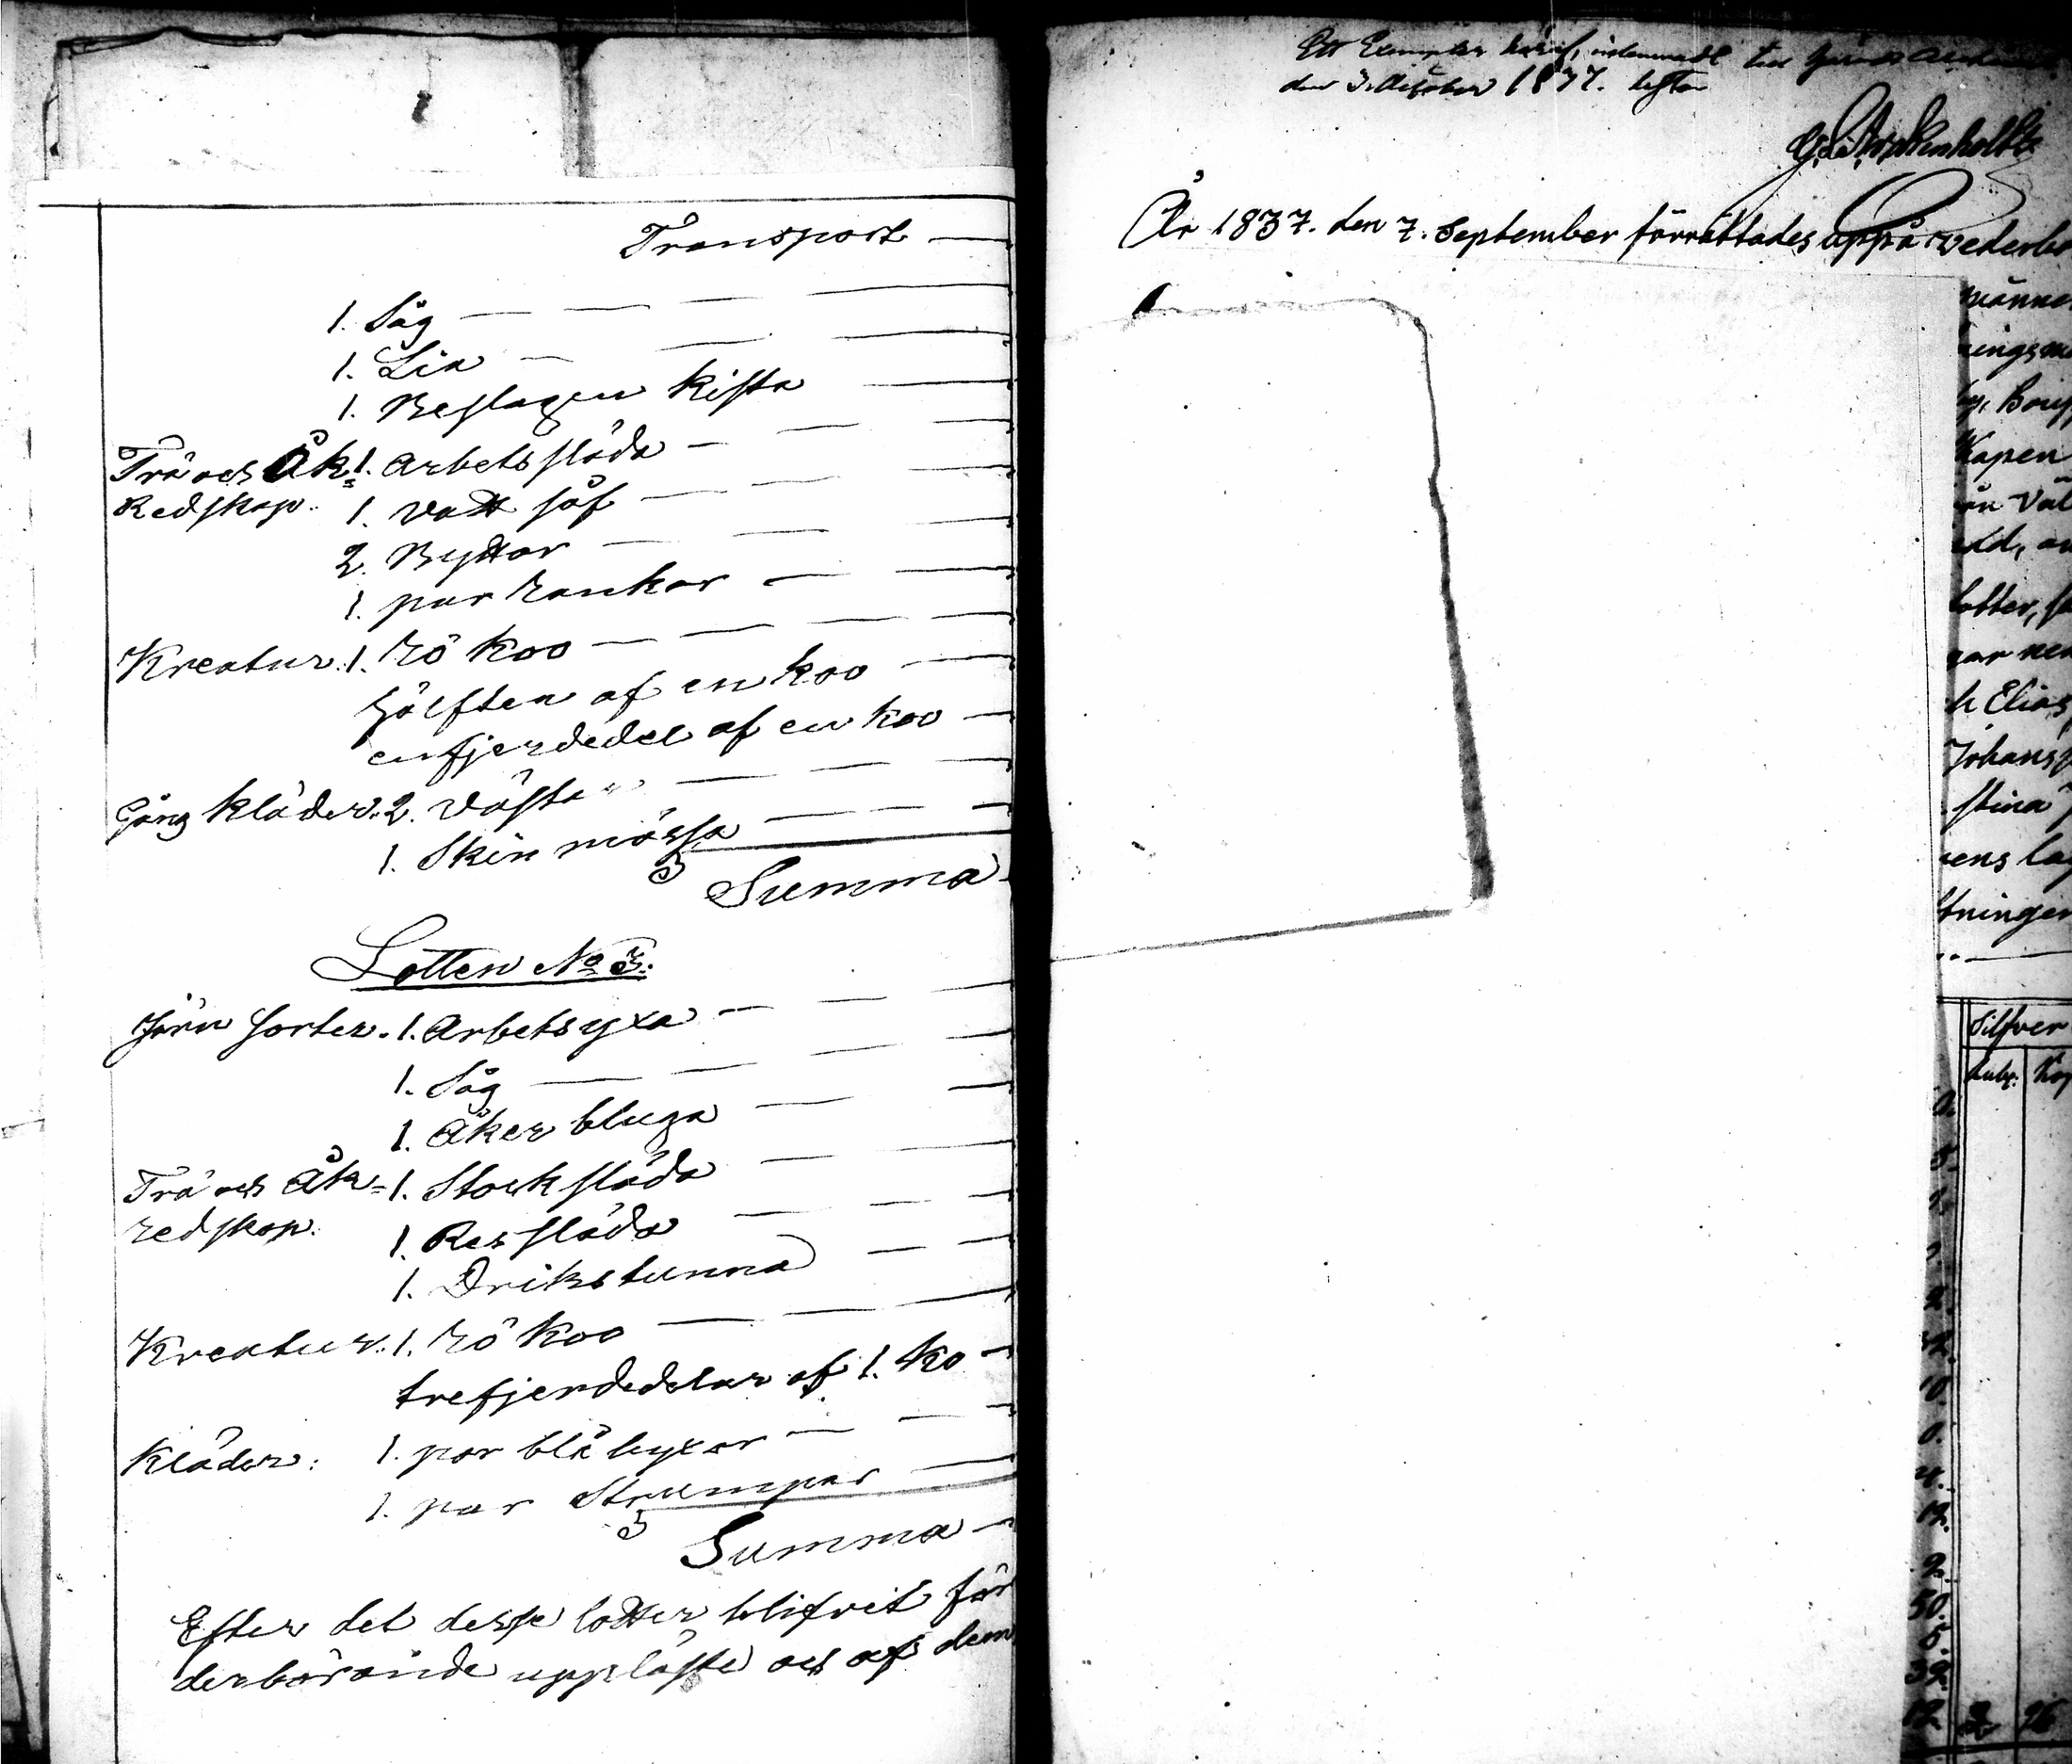 Transport
1. Såg
1. Lia
1. Beslagen kista
Trä och Åk= 1. Arbetssläda
Redskap. 1. Vatt såf
2. Byttor
1. par rankor
Kreatur. 1. rö koo
hälften af en koo
en fjerdedel af en koo
Gång kläder. 2. västar
1. Skin mössa
Summa
Lotten No 3.
Järn sorter. 1. Arbetsyxa
1. Såg
1. Åker bluga
Trä och Åk= 1. Stock släda
redskap. 1. Res släda
1. Drikstunna
Kreatur. 1. rö koo
trefjerdedelar af 1. Ko
Kläder: 1. par blå byxor
1. par Strumpor
Summa
Efter det desse lotter blifvit för
derbörande uppläste och af dem
Ett Exemplar häraf, inlemnadt till Härads
den 3. October 1837. 
År 1837. den 7. September förrättades uppå vederbö
männe
ningsm
Kapen
ån Väl
lotter,
gar
h Elias
Johans
stina
ens lag
tningen
Silfver
Rub. Kop
0.
5.
1.
2.
10.
0.
4.
12.
2.
50.
5.
32.
12. 2 96